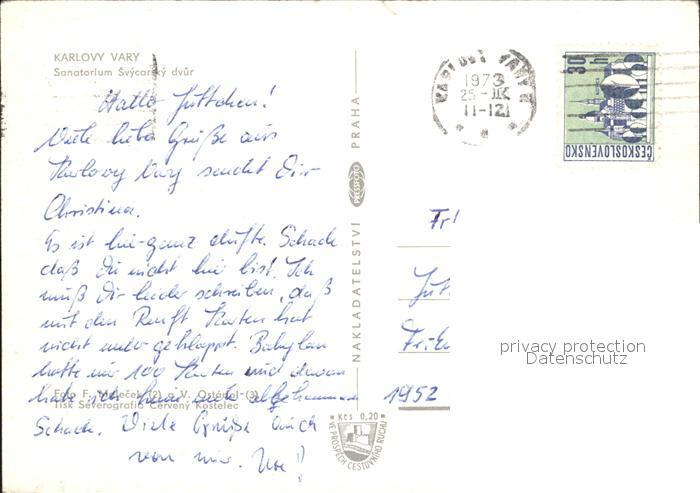 KARLOVY VARY
Sanatorium Švýcarský dvůr
Hallo Juttchen!
Viele liebe Grüße aus
Karlovy Vary sendet Dir
Christina.
Es ist hier ganz dufte. Schade
daß Du nicht hier bist. Ich
muß Dir leider schreiben, daß
mit den Renft Karten hat
nicht mehr geklappt. Babylon
hatte nur 100 Karten und davon
habe ich keine mehr abbekommen
Schade. Viele Grüße auch
von mir. Ute!
Foto F. (2) a V. (3)
Tisk Severografia Červený Kostelec
NAKLADATELSTVÍ PRESSFOTO PRAHA
Kčs 0,20
VE PROSPĚCH CESTOVNÍHO RUCHU
KARLOVY VARY
1973
25.
11-12
30 h
ČESKOSLOVENSKO
Fr
Jut
1952
privacy protection
Datenschutz